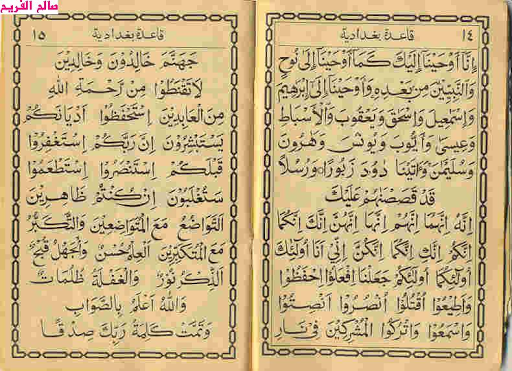 صالح الفريح
١٤
قاعدة بغدادية
إِنَّا أَوْحَيْنَا إِلَيْكَ كَمَا أَوْحَيْنَا إِلَى نُوحٍ
وَالنَّبِيِّينَ مِنْ بَعْدِهِ وَأَوْحَيْنَا إِلَى إِبْرٰهِيمَ
وَإِسْمٰعِيلَ وَإِسْحٰقَ وَيَعْقُوبَ وَالْأَسْبَاطِ
وَعِيسَى وَأَيُّوبَ وَيُونُسَ وَهٰرُونَ
وَسُلَيْمٰنَ وَءَاتَيْنَا دَاوُدَ زَبُورًا وَرُسُلاً
قَدْ قَصَصْنٰهُمْ عَلَيْكَ
إِنَّهُ إِنَّهُمَا إِنَّهُمْ إِنَّهَا إِنَّهُنَّ إِنَّكَ إِنَّكُمَا
إِنَّكُمْ إِنَّكِ إِنَّكُمَا إِنَّكُنَّ إِنِّي إِنَّا أُولٰئِكَ
أُولٰئِكُمَا أُولٰئِكُمْ جَعَلْنَا اِفْعَلُوا اِحْفَظُوا
وَأَطِيعُوا اُقْتُلُوا اُنْصُرُوا اَنْصِتُوا
وَاسْمَعُوا وَاتْرُكُوا الْمُشْرِكِينَ فِي نَارِ
قاعدة بغدادية
١٥
جَهَنَّمَ خَالِدُونَ وَخَالِدِينَ
لَا تَقْنَطُوا مِنْ رَحْمَةِ اللهِ
مِنَ الْعَابِدِينَ اِسْتَحْفَظُوا أَدْيَانَكُمْ
يَسْتَبْشِرُونَ إِنَّ رَبَّكُمْ اِسْتَغْفِرُوا
قَبْلَكُمْ اِسْتَنْصَرُوا اِسْتَطْعَمُوا
سَتُغْلَبُونَ اِنْ كُنْتُمْ ظَاهِرِينَ
التَّوَاضُعُ مَعَ الْمُتَوَاضِعِينَ وَالتَّكَبُّرُ
مَعَ الْمُتَكَبِّرِينَ الْعِلْمُ حُسْنٌ وَالْجَهْلُ قُبْحٌ
الذِّكْرُ نُورٌ وَالْغَفْلَةُ ظُلُمَاتٌ
وَاللهُ أَعْلَمُ بِالصَّوَابِ
وَتَمَّتْ كَلِمَةُ رَبِّكَ صِدْقًا